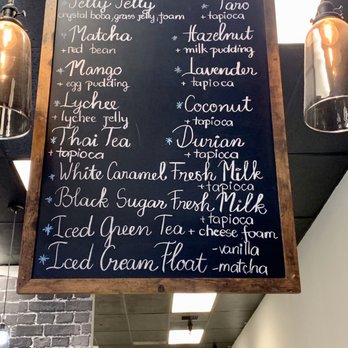 Jelly Jelly
crystal boba, grass jelly, foam
Taro
+ tapioca
* Matcha
+ red bean
* Hazelnut
+ milk pudding
* Mango
+ egg pudding
* Lavender
+ tapioca
* Lychee
+ lychee jelly
* Coconut
+ tapioca
* Thai Tea
+ tapioca
* Durian
+ tapioca
* White Caramel Fresh Milk
+ tapioca
* Black Sugar Fresh Milk
+ tapioca
* Iced Green Tea + cheese foam
* Iced Cream Float - vanilla
- matcha